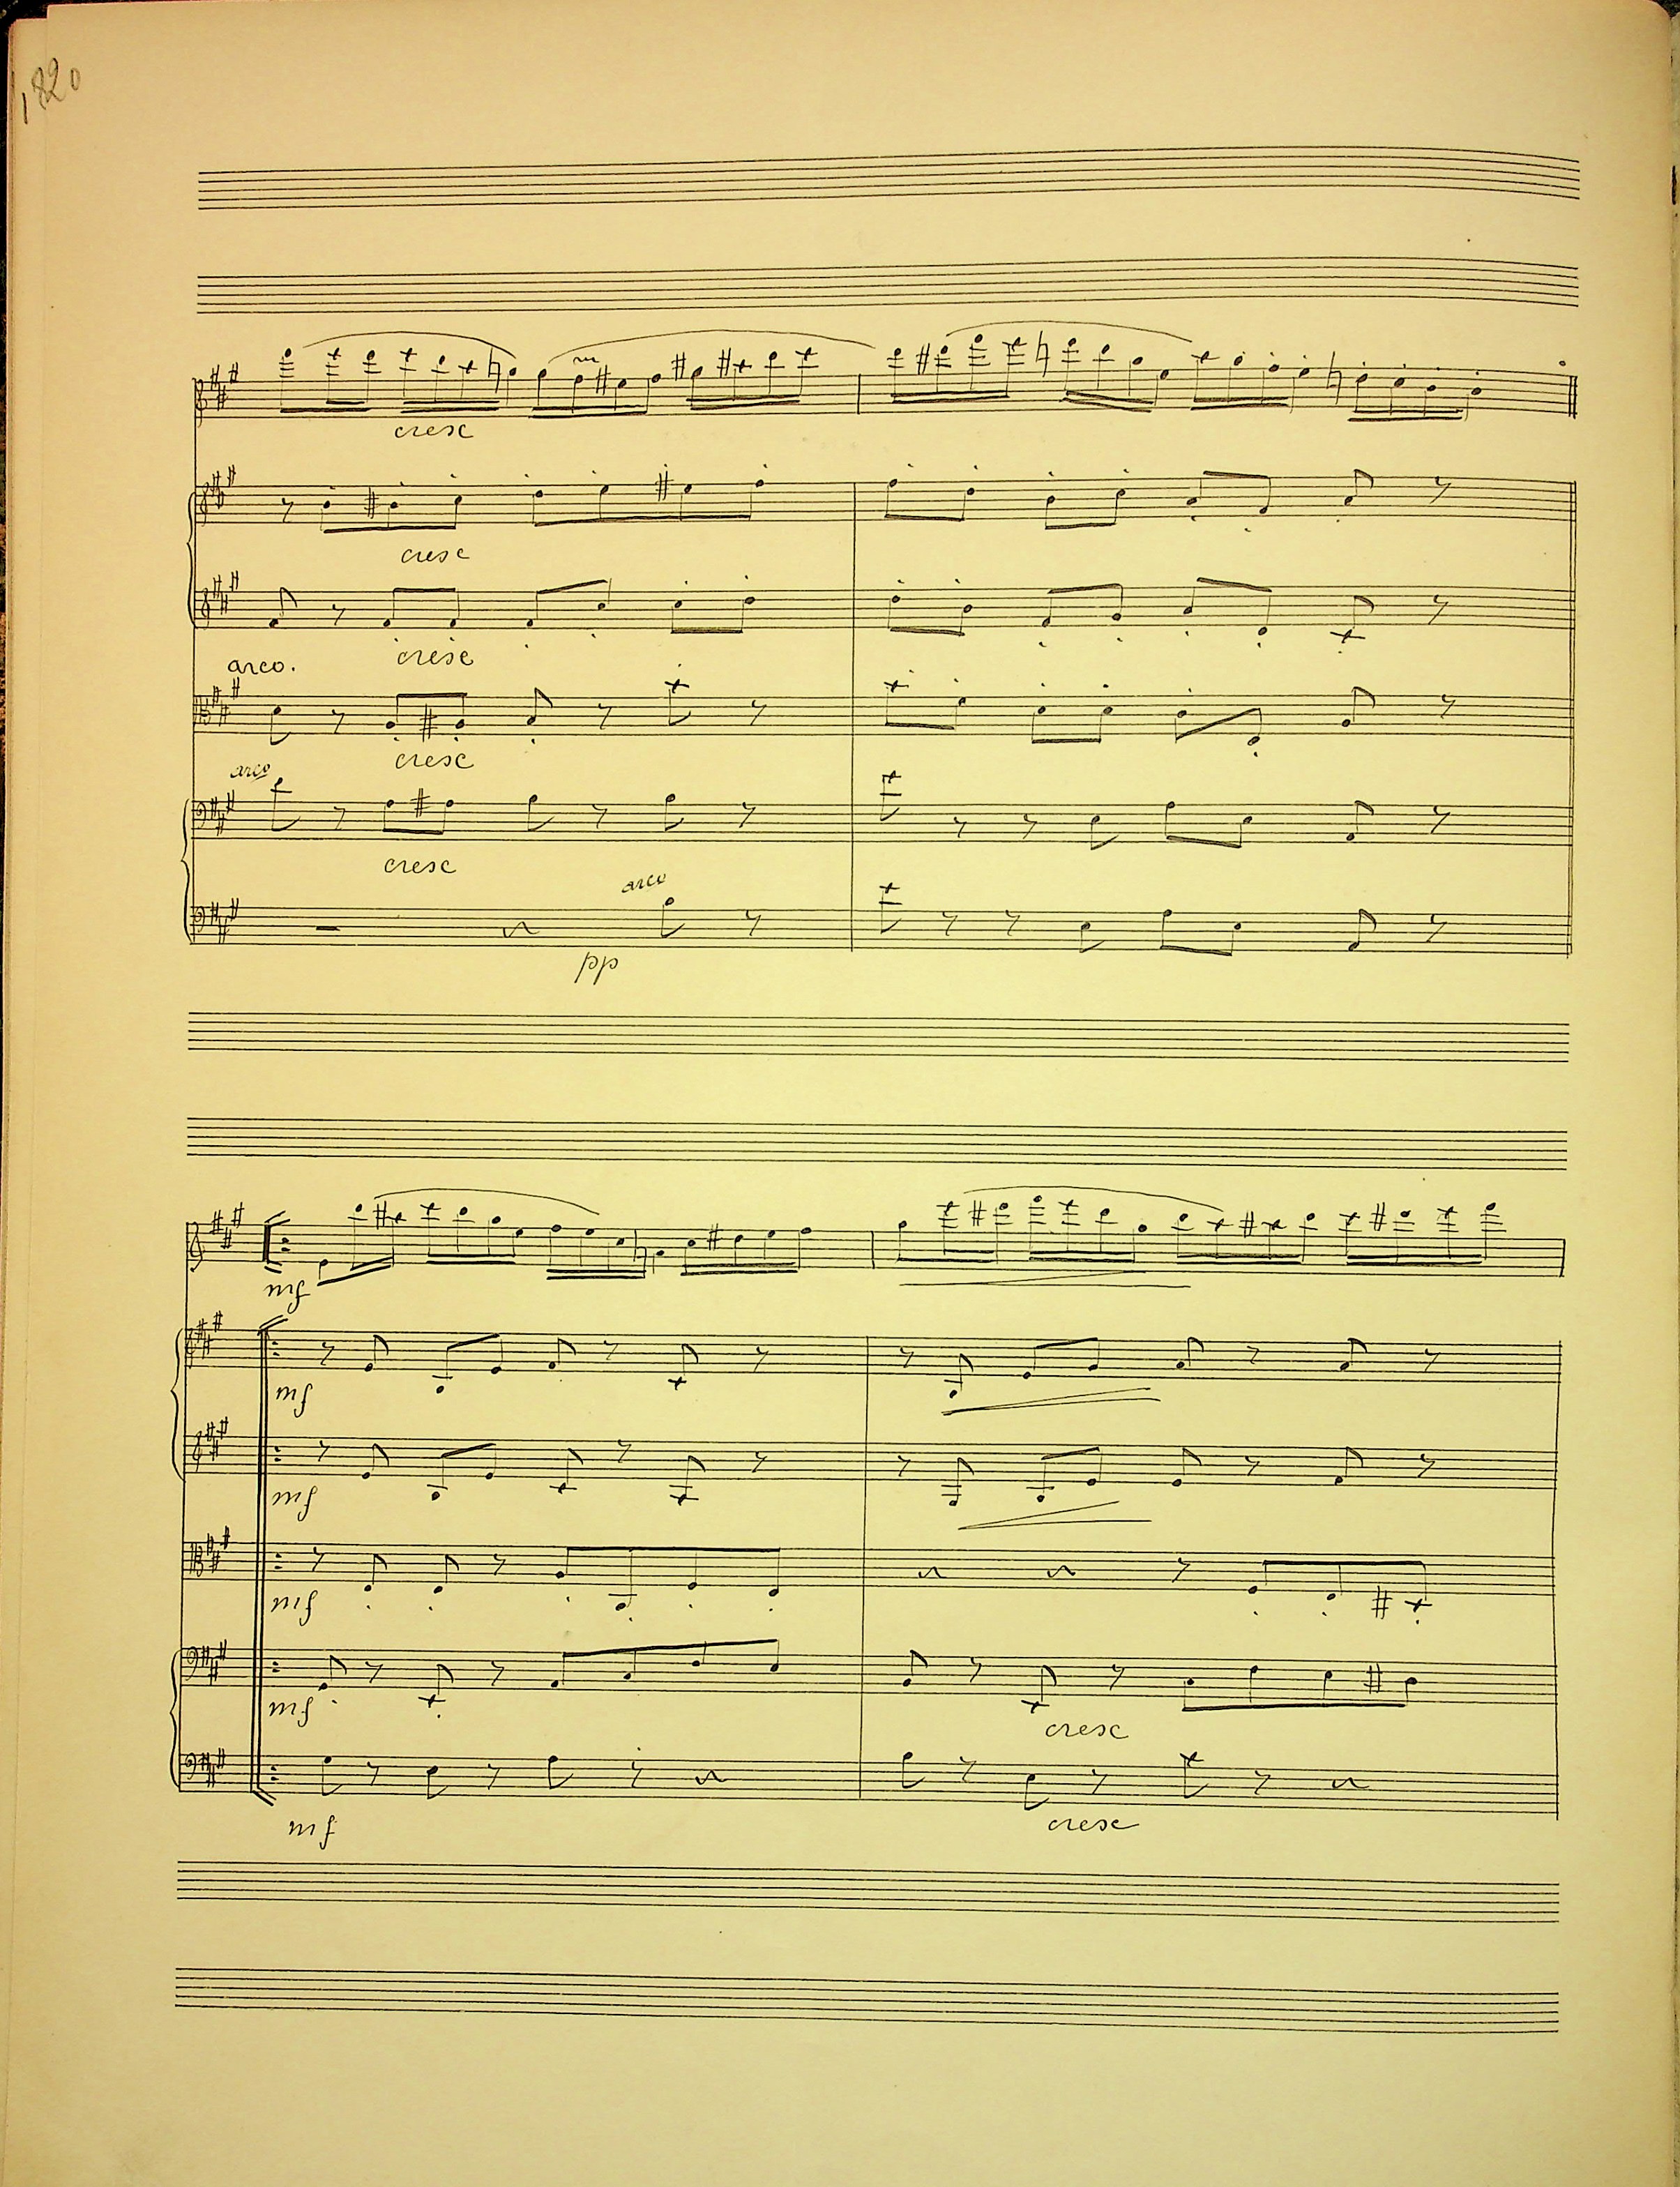 1820
cresc
cresc
cresc
arco.
cresc
arco
cresc
arco
pp
mf
mf
mf
mf
mf
cresc
mf
cresc